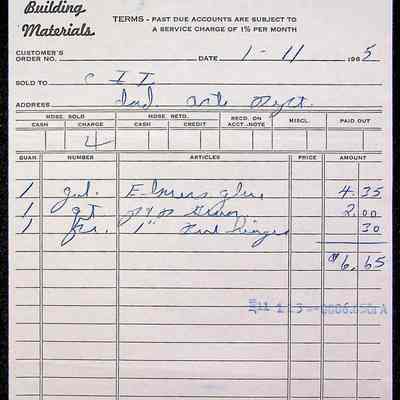 Building
Materials
TERMS - PAST DUE ACCOUNTS ARE SUBJECT TO
A SERVICE CHARGE OF 1% PER MONTH
CUSTOMER'S
ORDER NO. DATE 1-11 1965
SOLD TO C I T.
ADDRESS Ind. Arts Dept.
MDSE. SOLD MDSE. RETD. RECD. ON MISCL. PAID OUT
CASH CHARGE CASH CREDIT ACCT.-NOTE
4
QUAN. NUMBER ARTICLES PRICE AMOUNT
1 gal. Elmers glue 4.35
1 qt 2.00
1 pr. 1" hinges 30
$6.65